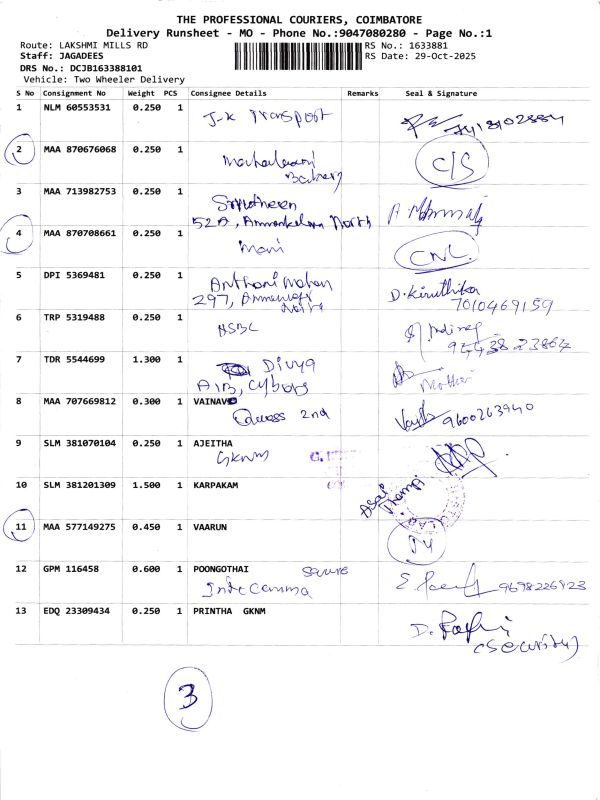 THE PROFESSIONAL COURIERS, COIMBATORE
Delivery Runsheet - MO - Phone No.:9047080280 - Page No.:1
Route: LAKSHMI MILLS RD RS No.: 1633881
Staff: JAGADEES RS Date: 29-Oct-2025
DRS No.: DCJB163388101
Vehicle: Two Wheeler Delivery
S No Consignment No Weight PCS Consignee Details Remarks Seal & Signature
1 NLM 60553531 0.250 1 J-K Transport
2 MAA 870676068 0.250 1 C/S
Bakery
3 MAA 713982753 0.250 1
52A, Ammankulam North
4 MAA 870708661 0.250 1 Mani CNL
5 DPI 5369481 0.250 1 Anthoni Mohan D. Kiruthika
297, 7010469159
6 TRP 5319488 0.250 1 HSBC
94438 23864
7 TDR 5544699 1.300 1 Divya
AIB, Cybors
8 MAA 707669812 0.300 1 VAINAV
2nd 9600263940
9 SLM 381070104 0.250 1 AJEITHA
GKNM
10 SLM 381201309 1.500 1 KARPAKAM Asai Thampi
11 MAA 577149275 0.450 1 VAARUN
12 GPM 116458 0.600 1 POONGOTHAI Square
9698226923
13 EDQ 23309434 0.250 1 PRINTHA GKNM
(Security)
3